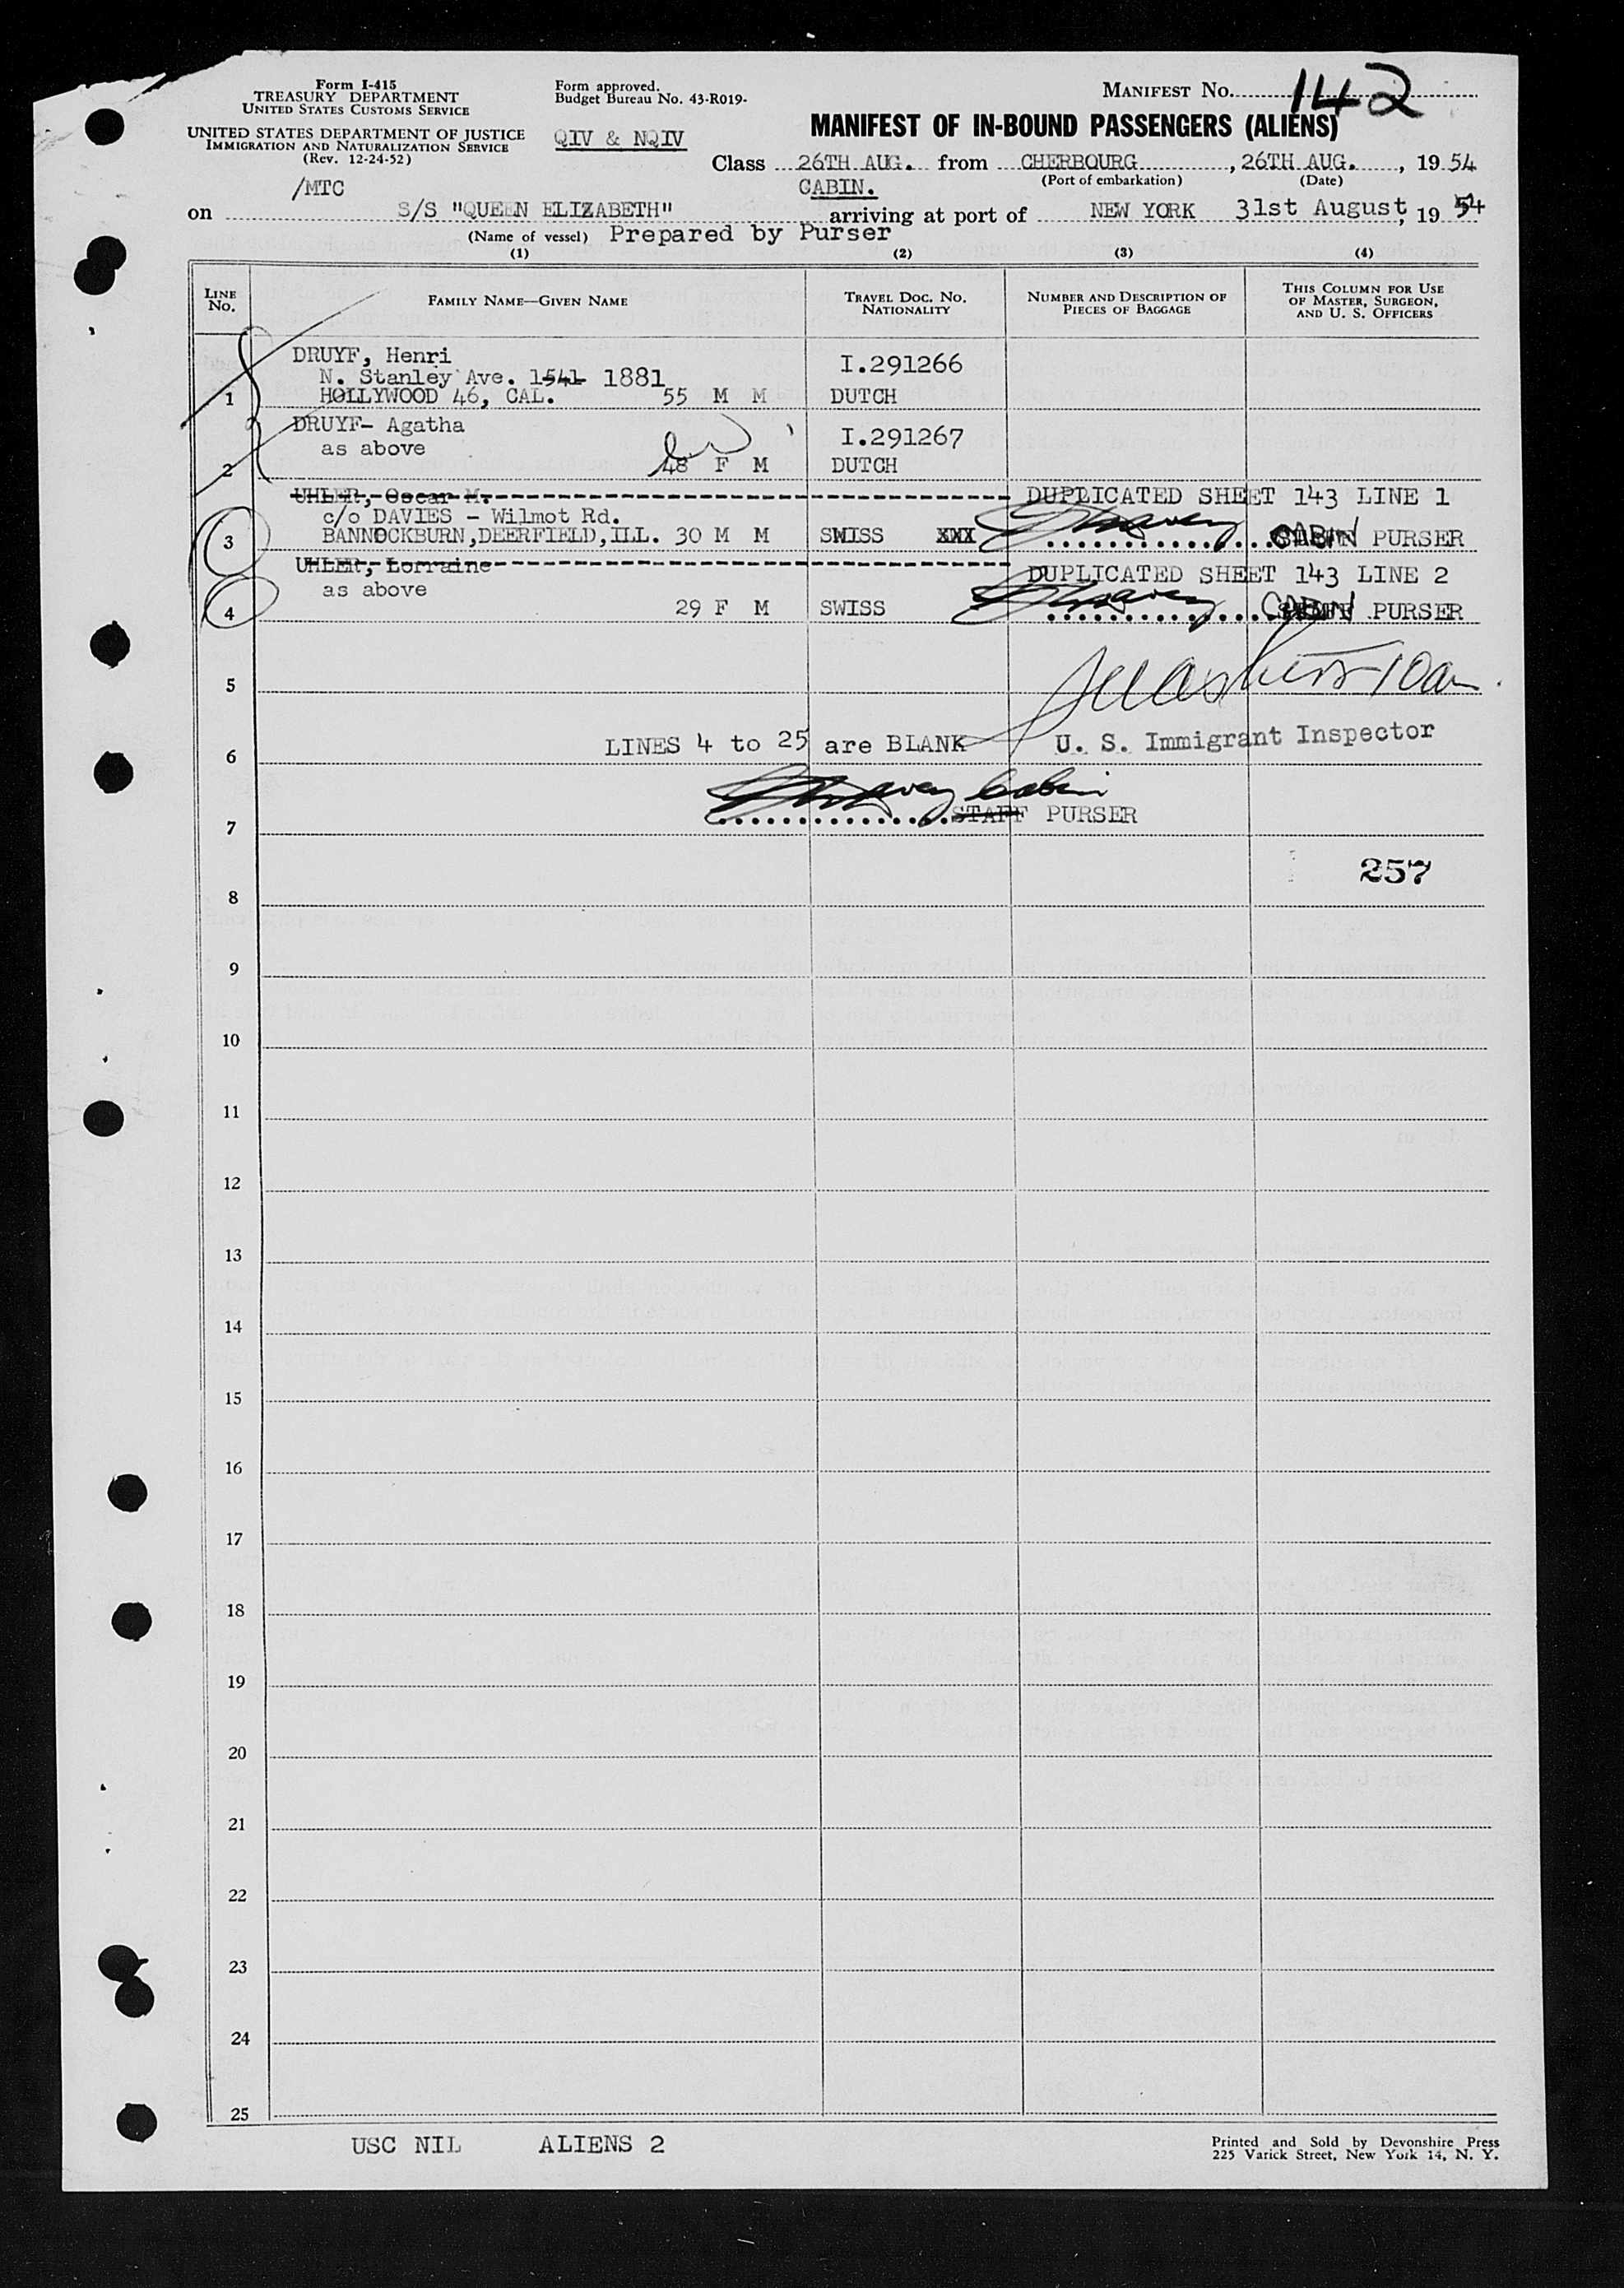 Form I-415
TREASURY DEPARTMENT
UNITED STATES CUSTOMS SERVICE
UNITED STATES DEPARTMENT OF JUSTICE
IMMIGRATION AND NATURALIZATION SERVICE
(Rev. 12-24-52)
Form approved.
Budget Bureau No. 43-R019-
QIV & NQIV
MANIFEST NO. 142
MANIFEST OF IN-BOUND PASSENGERS (ALIENS)
Class 26TH AUG. from CHERBOURG, 26TH AUG., 19 54
/MTC CABIN. (Port of embarkation) (Date)
on S/S "QUEEN ELIZABETH" arriving at port of NEW YORK 31st August, 19 54
(Name of vessel) Prepared by Purser
(1) (2) (3) (4)
LINE NO. FAMILY NAME—GIVEN NAME TRAVEL DOC. NO. NATIONALITY NUMBER AND DESCRIPTION OF PIECES OF BAGGAGE THIS COLUMN FOR USE OF MASTER, SURGEON, AND U. S. OFFICERS
DRUYF, Henri I.291266
N. Stanley Ave. 1541 1881
1 HOLLYWOOD 46, CAL. 55 M M DUTCH
DRUYF- Agatha I.291267
as above
2 48 F M DUTCH
UHLER, Oscar M. DUPLICATED SHEET 143 LINE 1
c/o DAVIES - Wilmot Rd.
3 BANNOCKBURN,DEERFIELD,ILL. 30 M M SWISS XXX CABIN PURSER
UHLER, Lorraine DUPLICATED SHEET 143 LINE 2
as above
4 29 F M SWISS CABIN PURSER
5 10am
LINES 4 to 25 are BLANK U. S. Immigrant Inspector
6
Cabin
7 STAFF PURSER
257
8
9
10
11
12
13
14
15
16
17
18
19
20
21
22
23
24
25
USC NIL ALIENS 2
Printed and Sold by Devonshire Press
225 Varick Street, New York 14, N. Y.